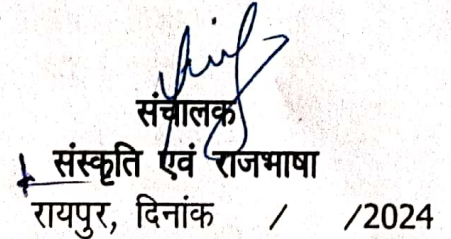 संचालक
संस्कृति एवं राजभाषा
रायपुर, दिनांक / /2024